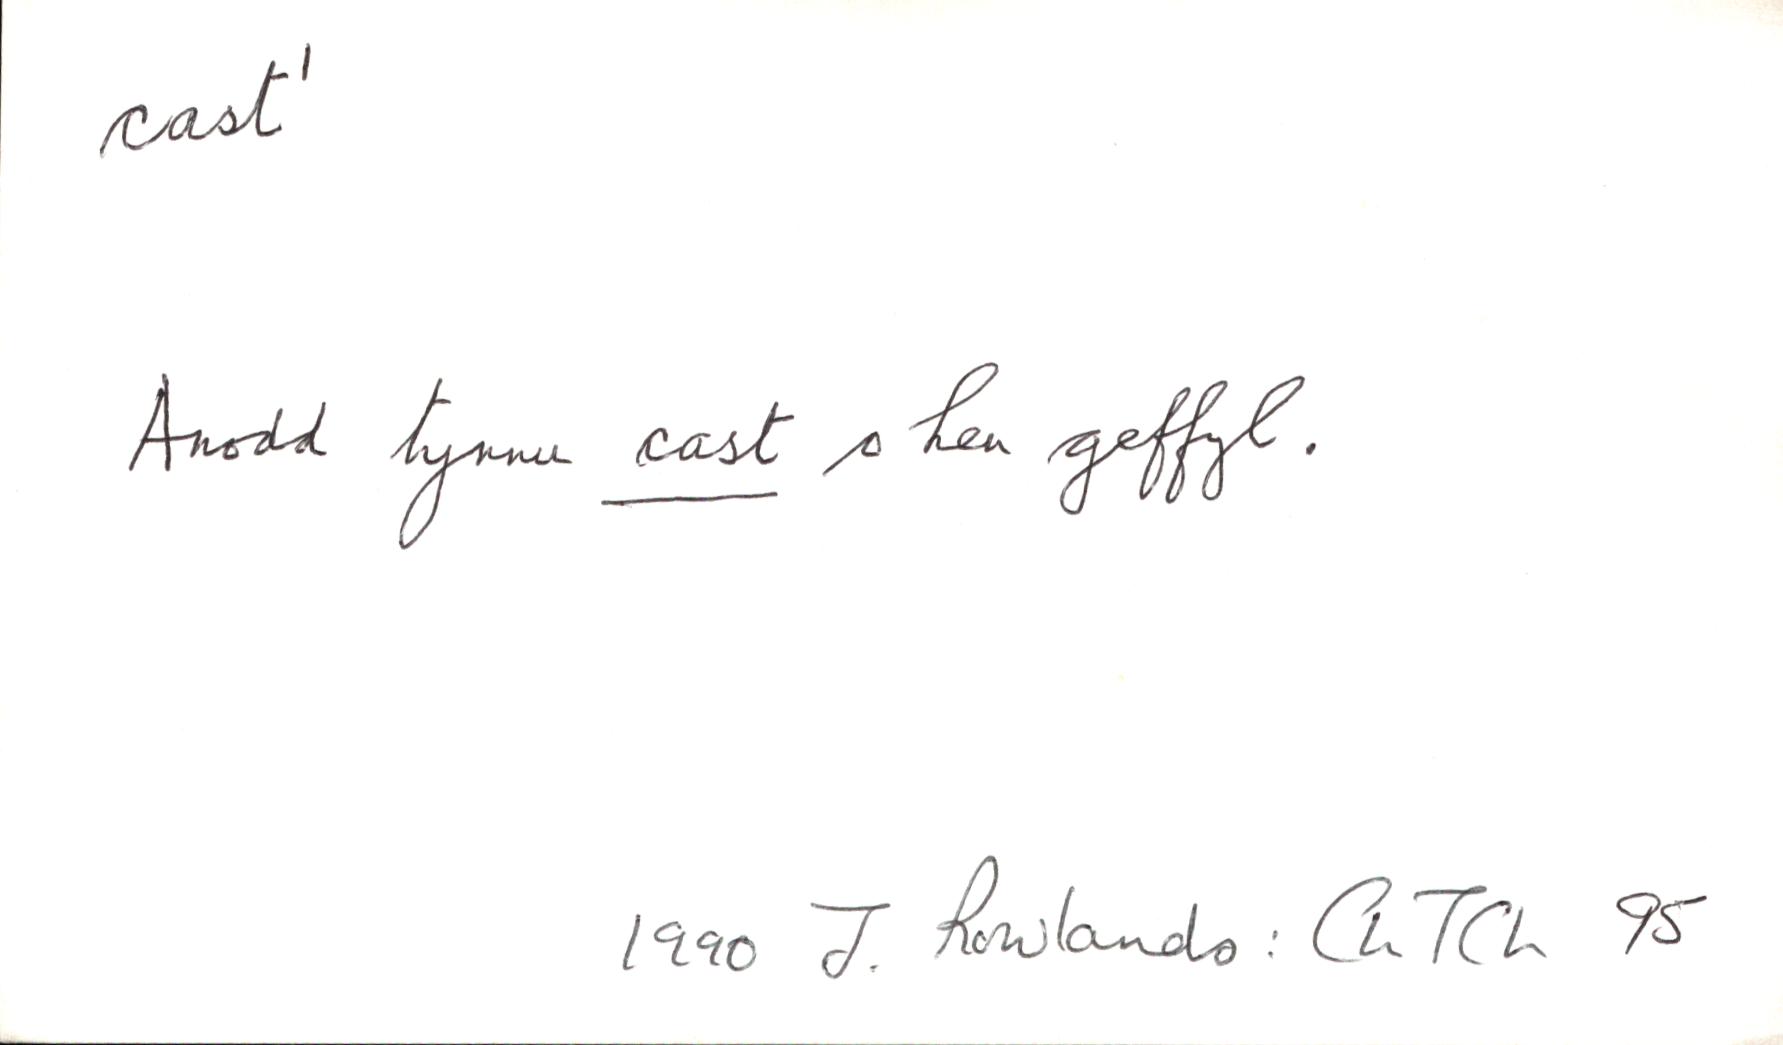 cast¹
Anodd tynnu cast o hen geffyl.
1990 J. Rowlands: ChTCh 95